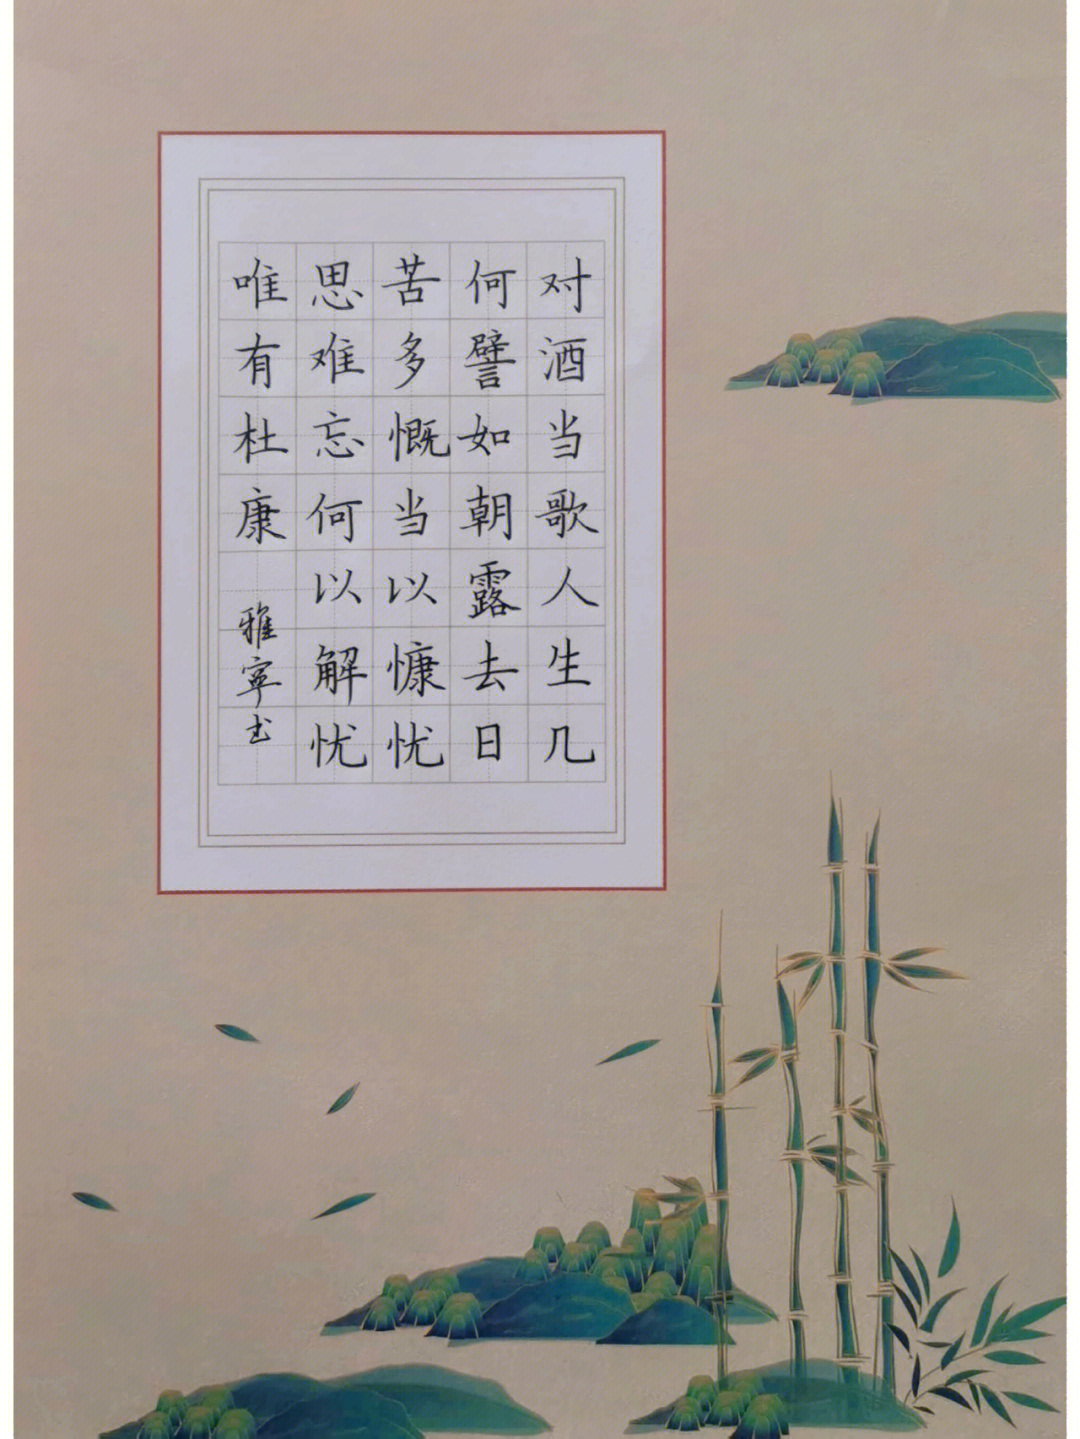 对酒当歌人生几
何譬如朝露去日
苦多慨当以慷忧
思难忘何以解忧
唯有杜康
雅寧书